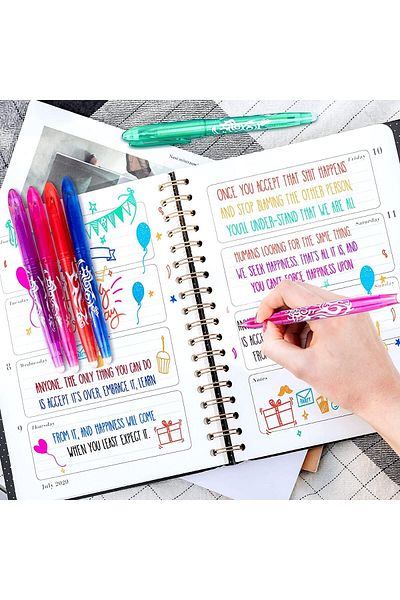 Tuesday
8 Wednesday
ANYONE. THE ONLY THING YOU CAN DO
IS ACCEPT IT'S OVER, EMBRACE IT, LEARN
9 Thursday
FROM IT, AND HAPPINESS WILL COME
WHEN YOU LEAST EXPECT IT.
July 2020
Friday 10
ONCE YOU ACCEPT THAT SHIT HAPPENS
AND STOP BLAMING THE OTHER PERSON,
YOU'LL UNDER-STAND THAT WE ARE ALL
Saturday 11
HUMANS LOOKING FOR THE SAME THING.
WE SEEK HAPPINESS, THAT'S ALL IT IS, AND
YOU CAN'T FORCE HAPPINESS UPON
Notes